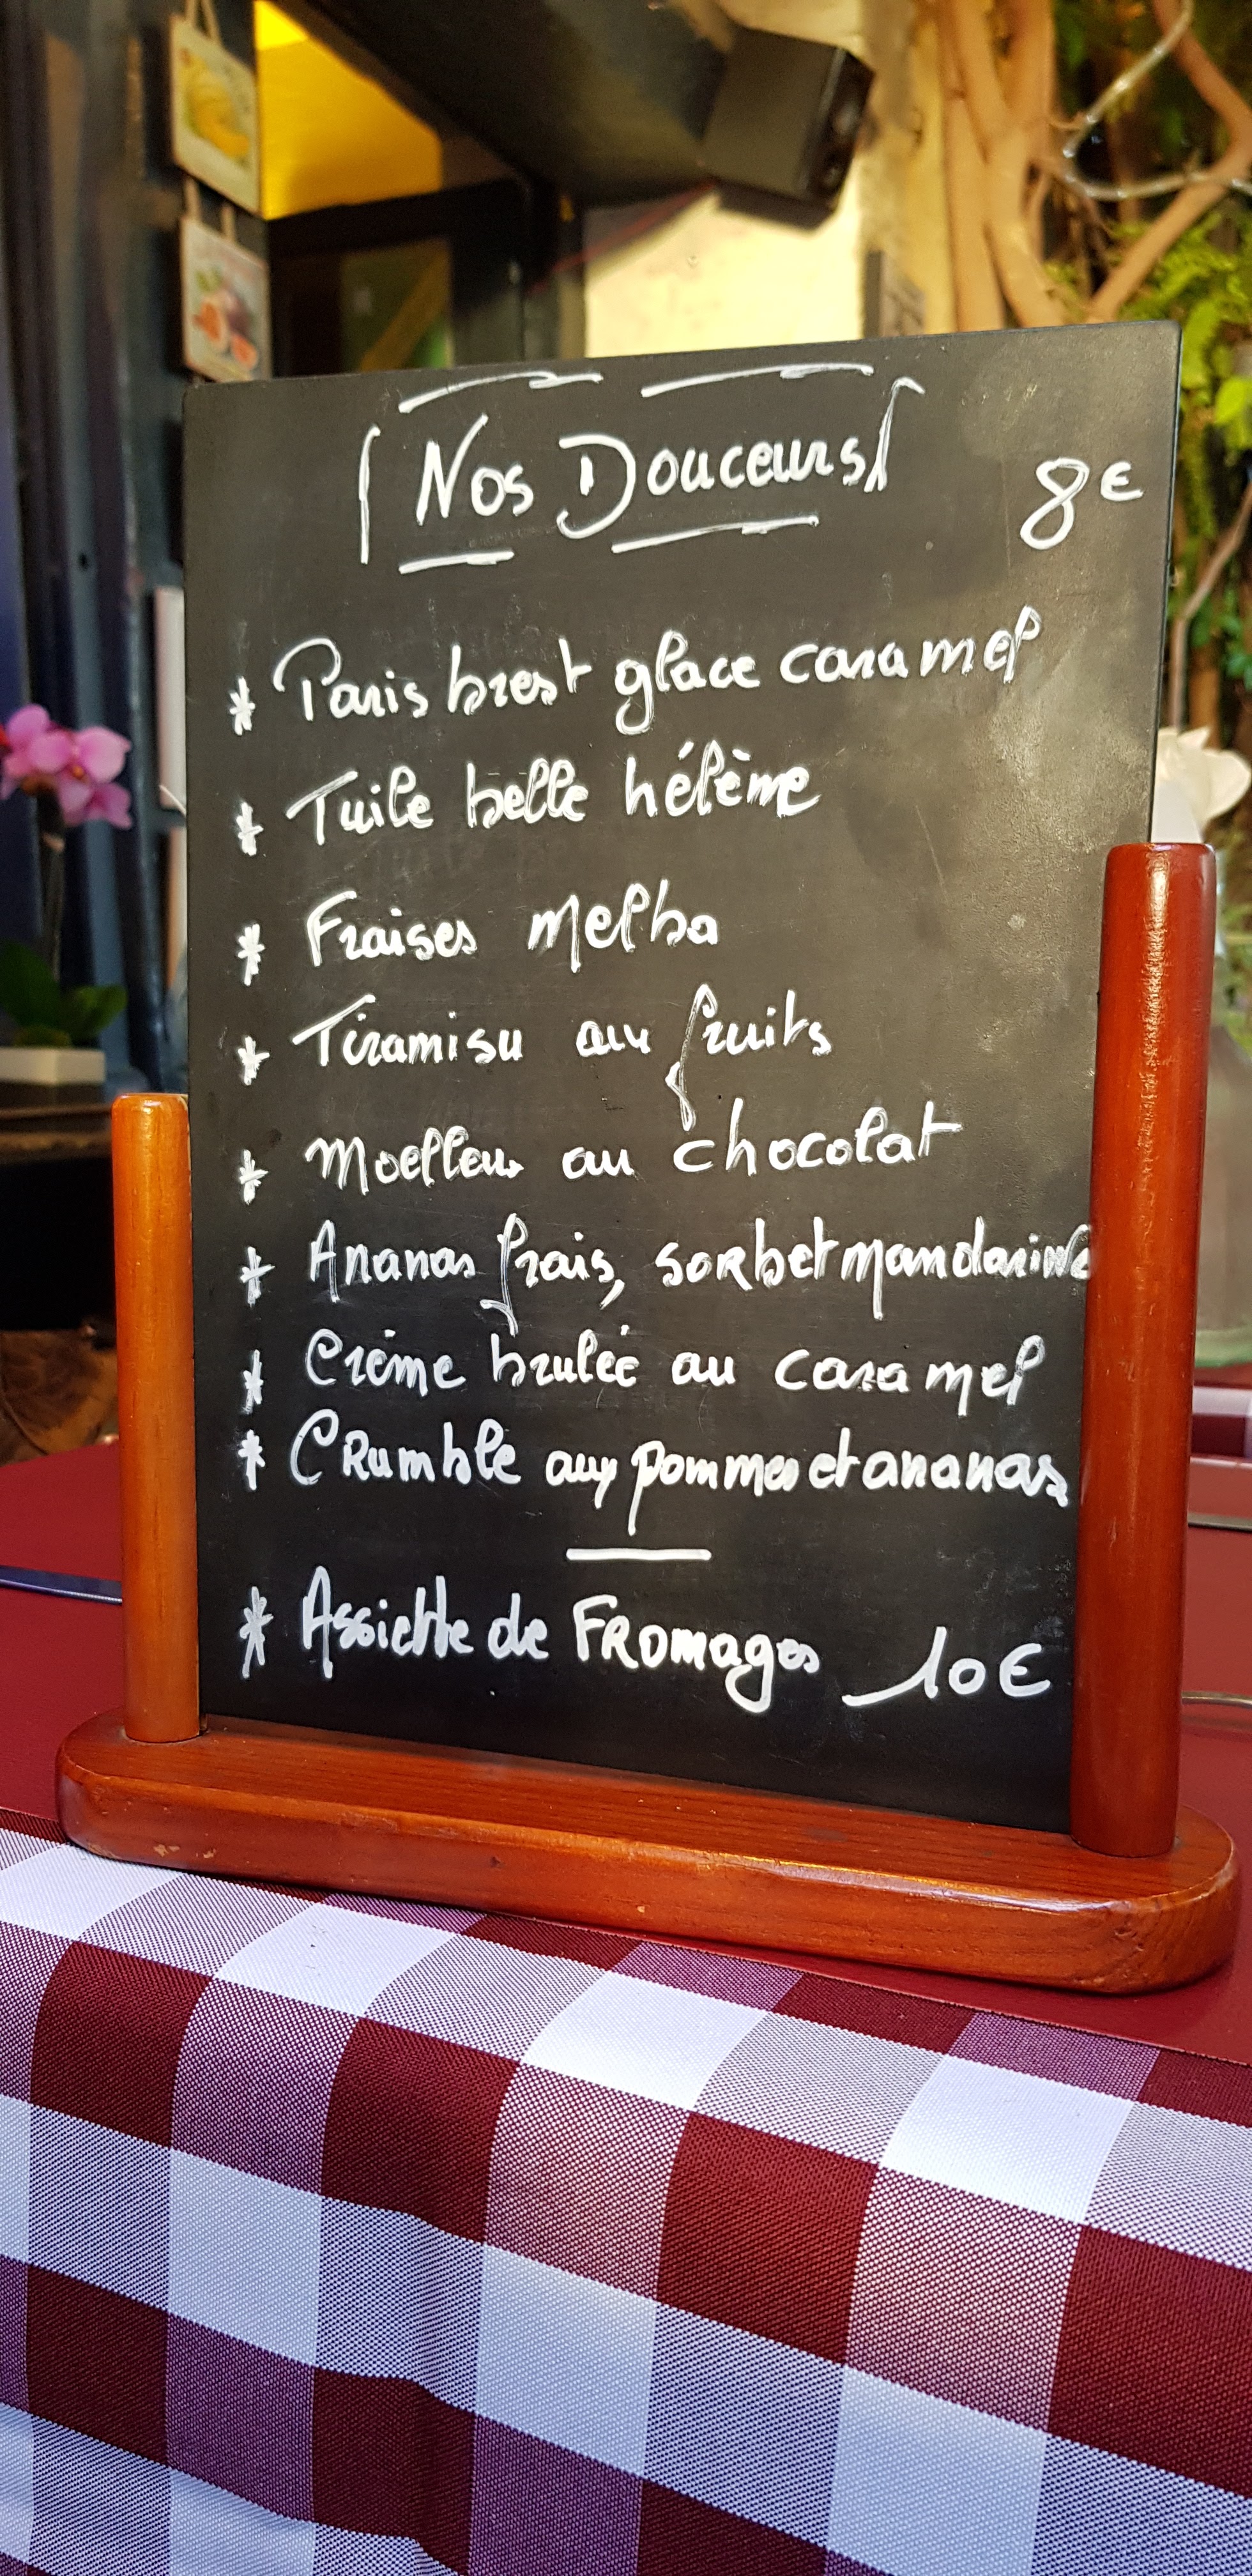 Nos Douceurs 8€
* Paris brest glace caramel
* Tuile belle hélème
* Fraises Melba
* Tiramisu aux fruits
* Moelleux au chocolat
* Ananas frais, sorbet mandarine
* Crème brulée au caramel
* Crumble aux pommes et ananas
* Assiette de Fromages 10€